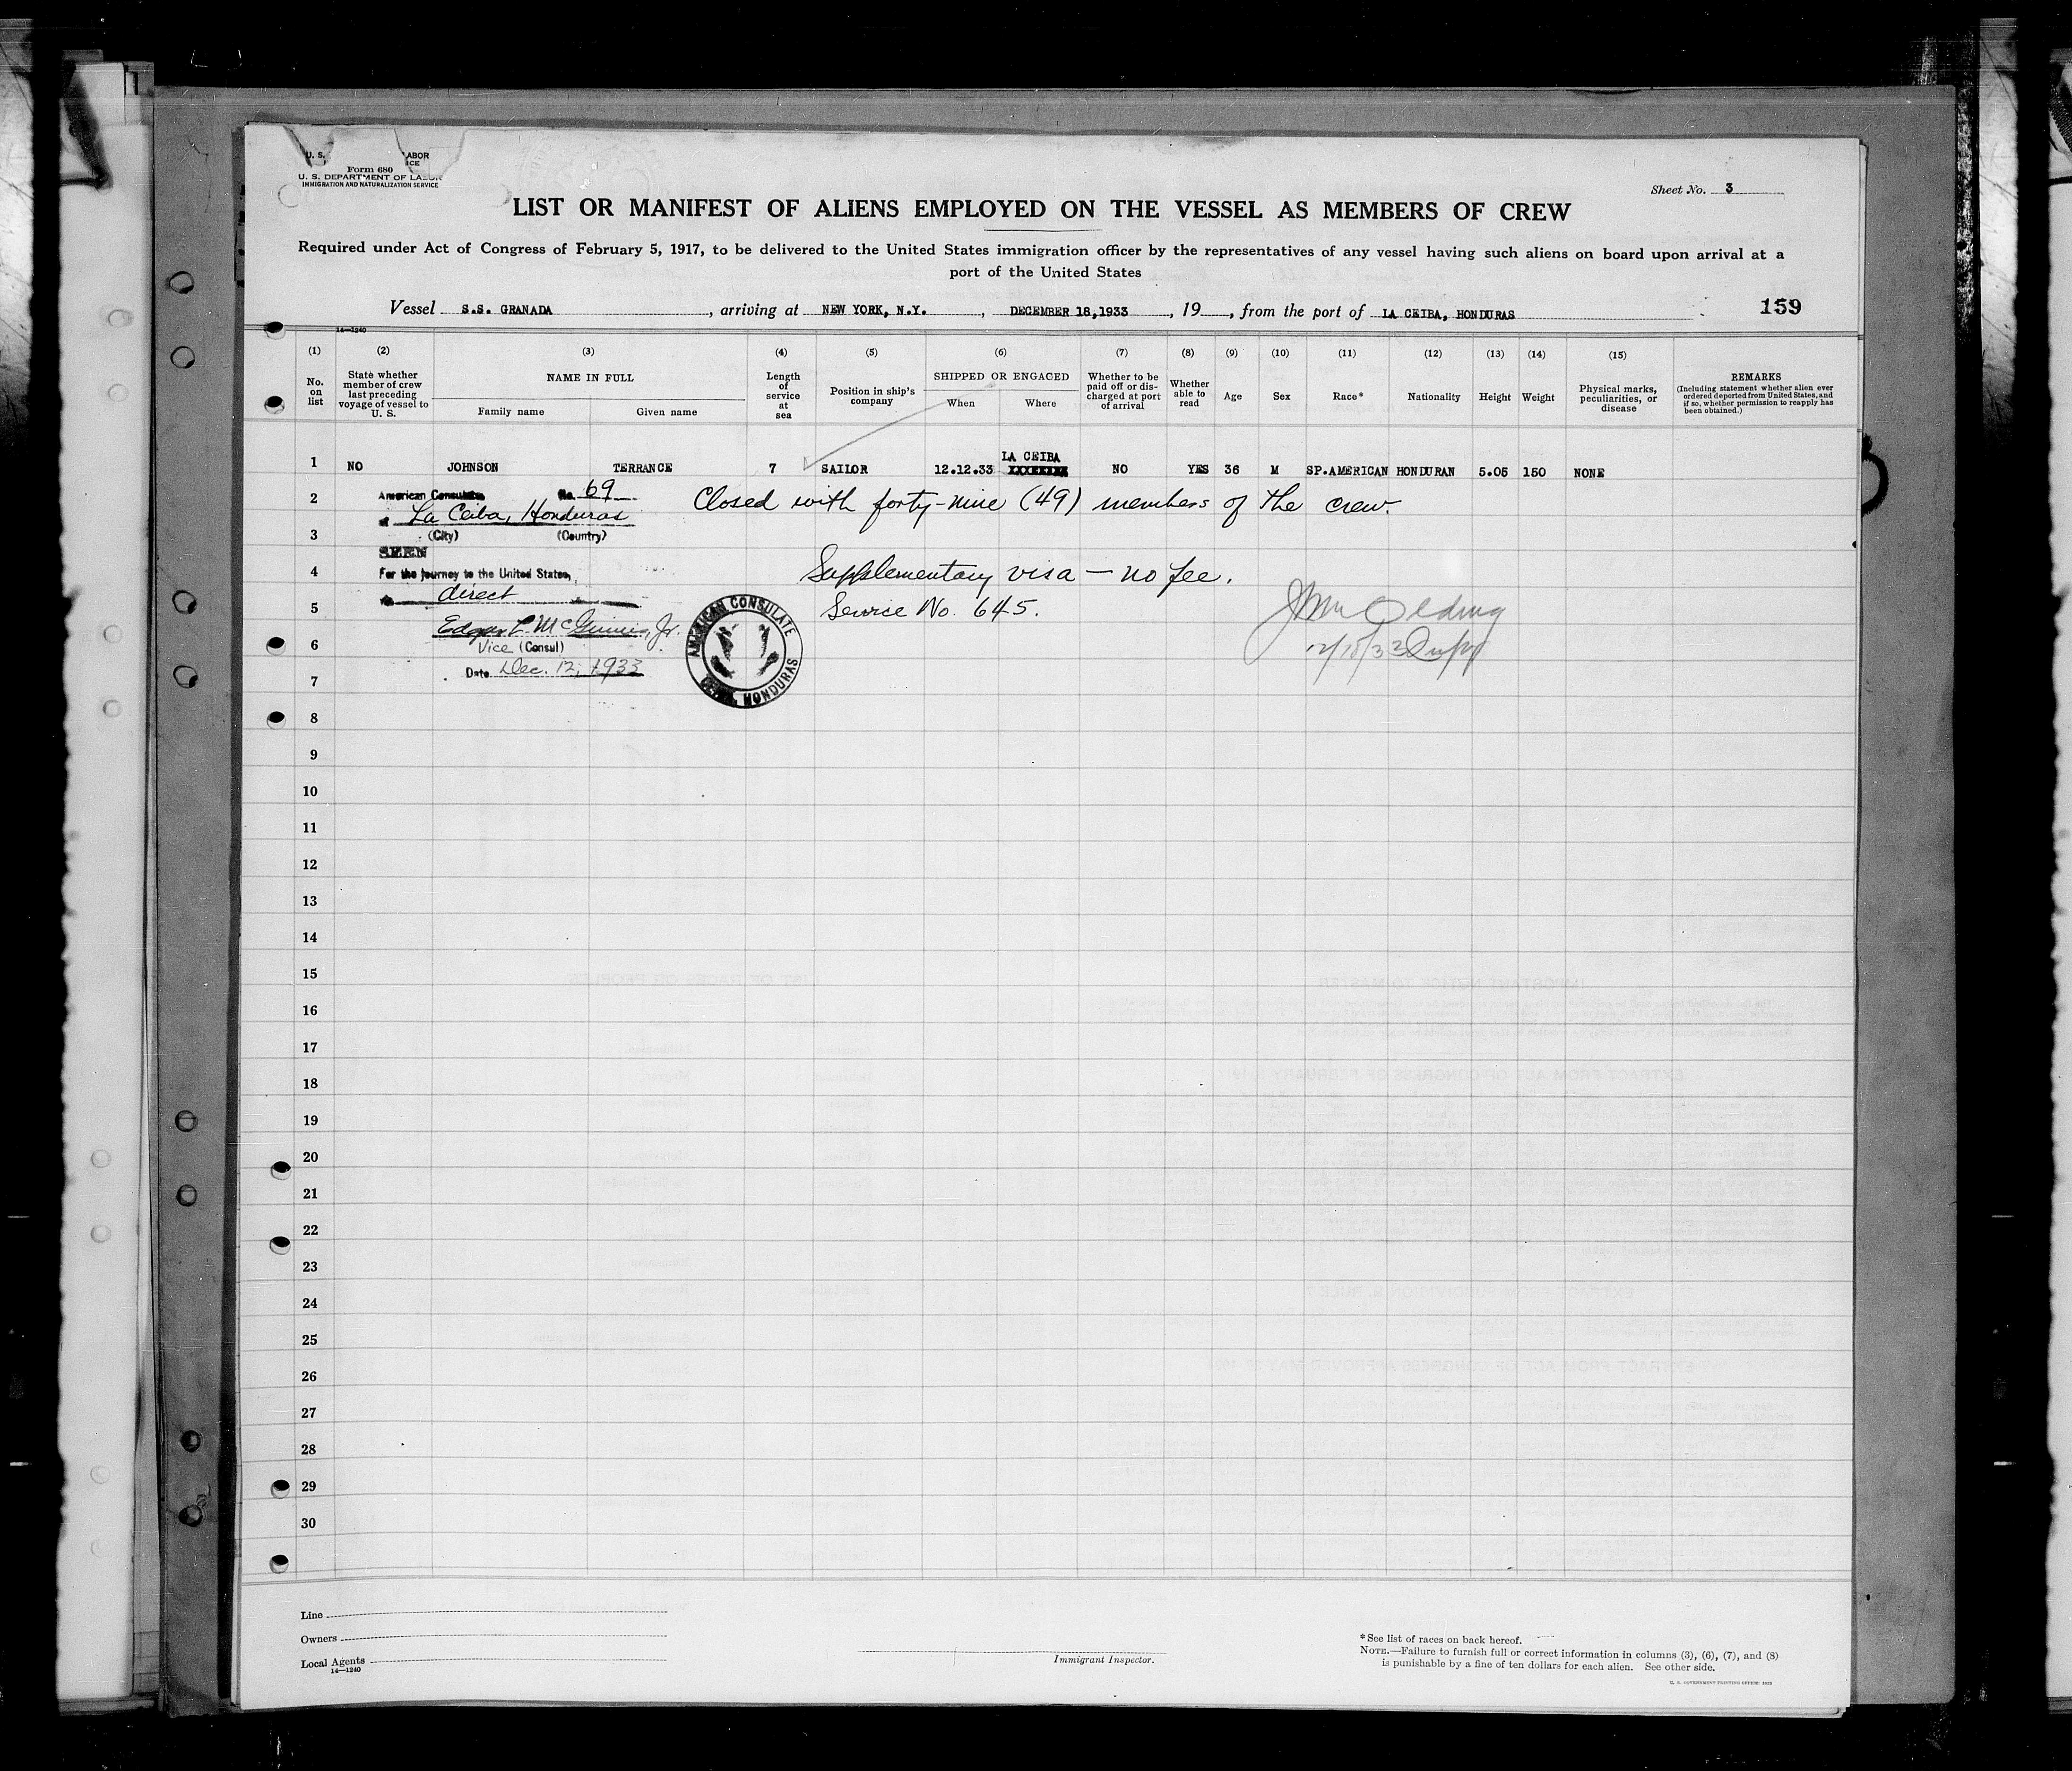 U. S. ABOR
ICE
Form 680
U. S. DEPARTMENT OF LABOR
IMMIGRATION AND NATURALIZATION SERVICE
Sheet No. 3
LIST OR MANIFEST OF ALIENS EMPLOYED ON THE VESSEL AS MEMBERS OF CREW
Required under Act of Congress of February 5, 1917, to be delivered to the United States immigration officer by the representatives of any vessel having such aliens on board upon arrival at a
port of the United States
Vessel S.S. GRANADA, arriving at NEW YORK, N.Y., DECEMBER 18,1933, 19, from the port of LA CEIBA, HONDURAS 159
14—1240
(1) (2) (3) (4) (5) (6) (7) (8) (9) (10) (11) (12) (13) (14) (15)
No. on list
State whether member of crew last preceding voyage of vessel to U. S.
NAME IN FULL
Family name
Given name
Length of service at sea
Position in ship's company
SHIPPED OR ENGAGED
When
Where
Whether to be paid off or discharged at port of arrival
Whether able to read
Age
Sex
Race*
Nationality
Height
Weight
Physical marks, peculiarities, or disease
REMARKS
(Including statement whether alien ever ordered deported from United States, and if so, whether permission to reapply has been obtained.)
LA CEIBA
1 NO JOHNSON TERRANCE 7 SAILOR 12.12.33 XXXXXXXX NO YES 36 M SP.AMERICAN HONDURAN 5.05 150 NONE
American Consulate No. 69
2 Closed with forty-nine (49) members of the crew.
La Ceiba, Honduras
3 (City) (Country)
SEEN
4 For the journey to the United States, Supplementary visa — no fee.
direct
5 Service No. 645.
Edgar L. McGinnis, Jr.
6 Vice (Consul)
Date Dec. 12, 1933
7
AMERICAN CONSULATE
CEIBA, HONDURAS
8
9
10
11
12
13
14
15
16
17
18
19
20
21
22
23
24
25
26
27
28
29
30
Line
Owners
Local Agents
14—1240
Immigrant Inspector.
*See list of races on back hereof.
NOTE.—Failure to furnish full or correct information in columns (3), (6), (7), and (8)
is punishable by a fine of ten dollars for each alien. See other side.